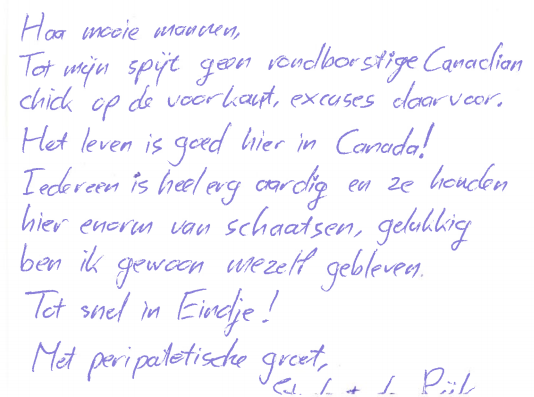 Hoi mooie mannen,
Tot mijn spijt geen rondborstige Canadian
chick op de voorkant, excuses daarvoor.
Het leven is goed hier in Canada!
Iedereen is heel erg aardig en ze houden
hier enorm van schaatsen, gelukkig
ben ik gewoon mezelf gebleven.
Tot snel in Eindje!
Met peripatetische groet,